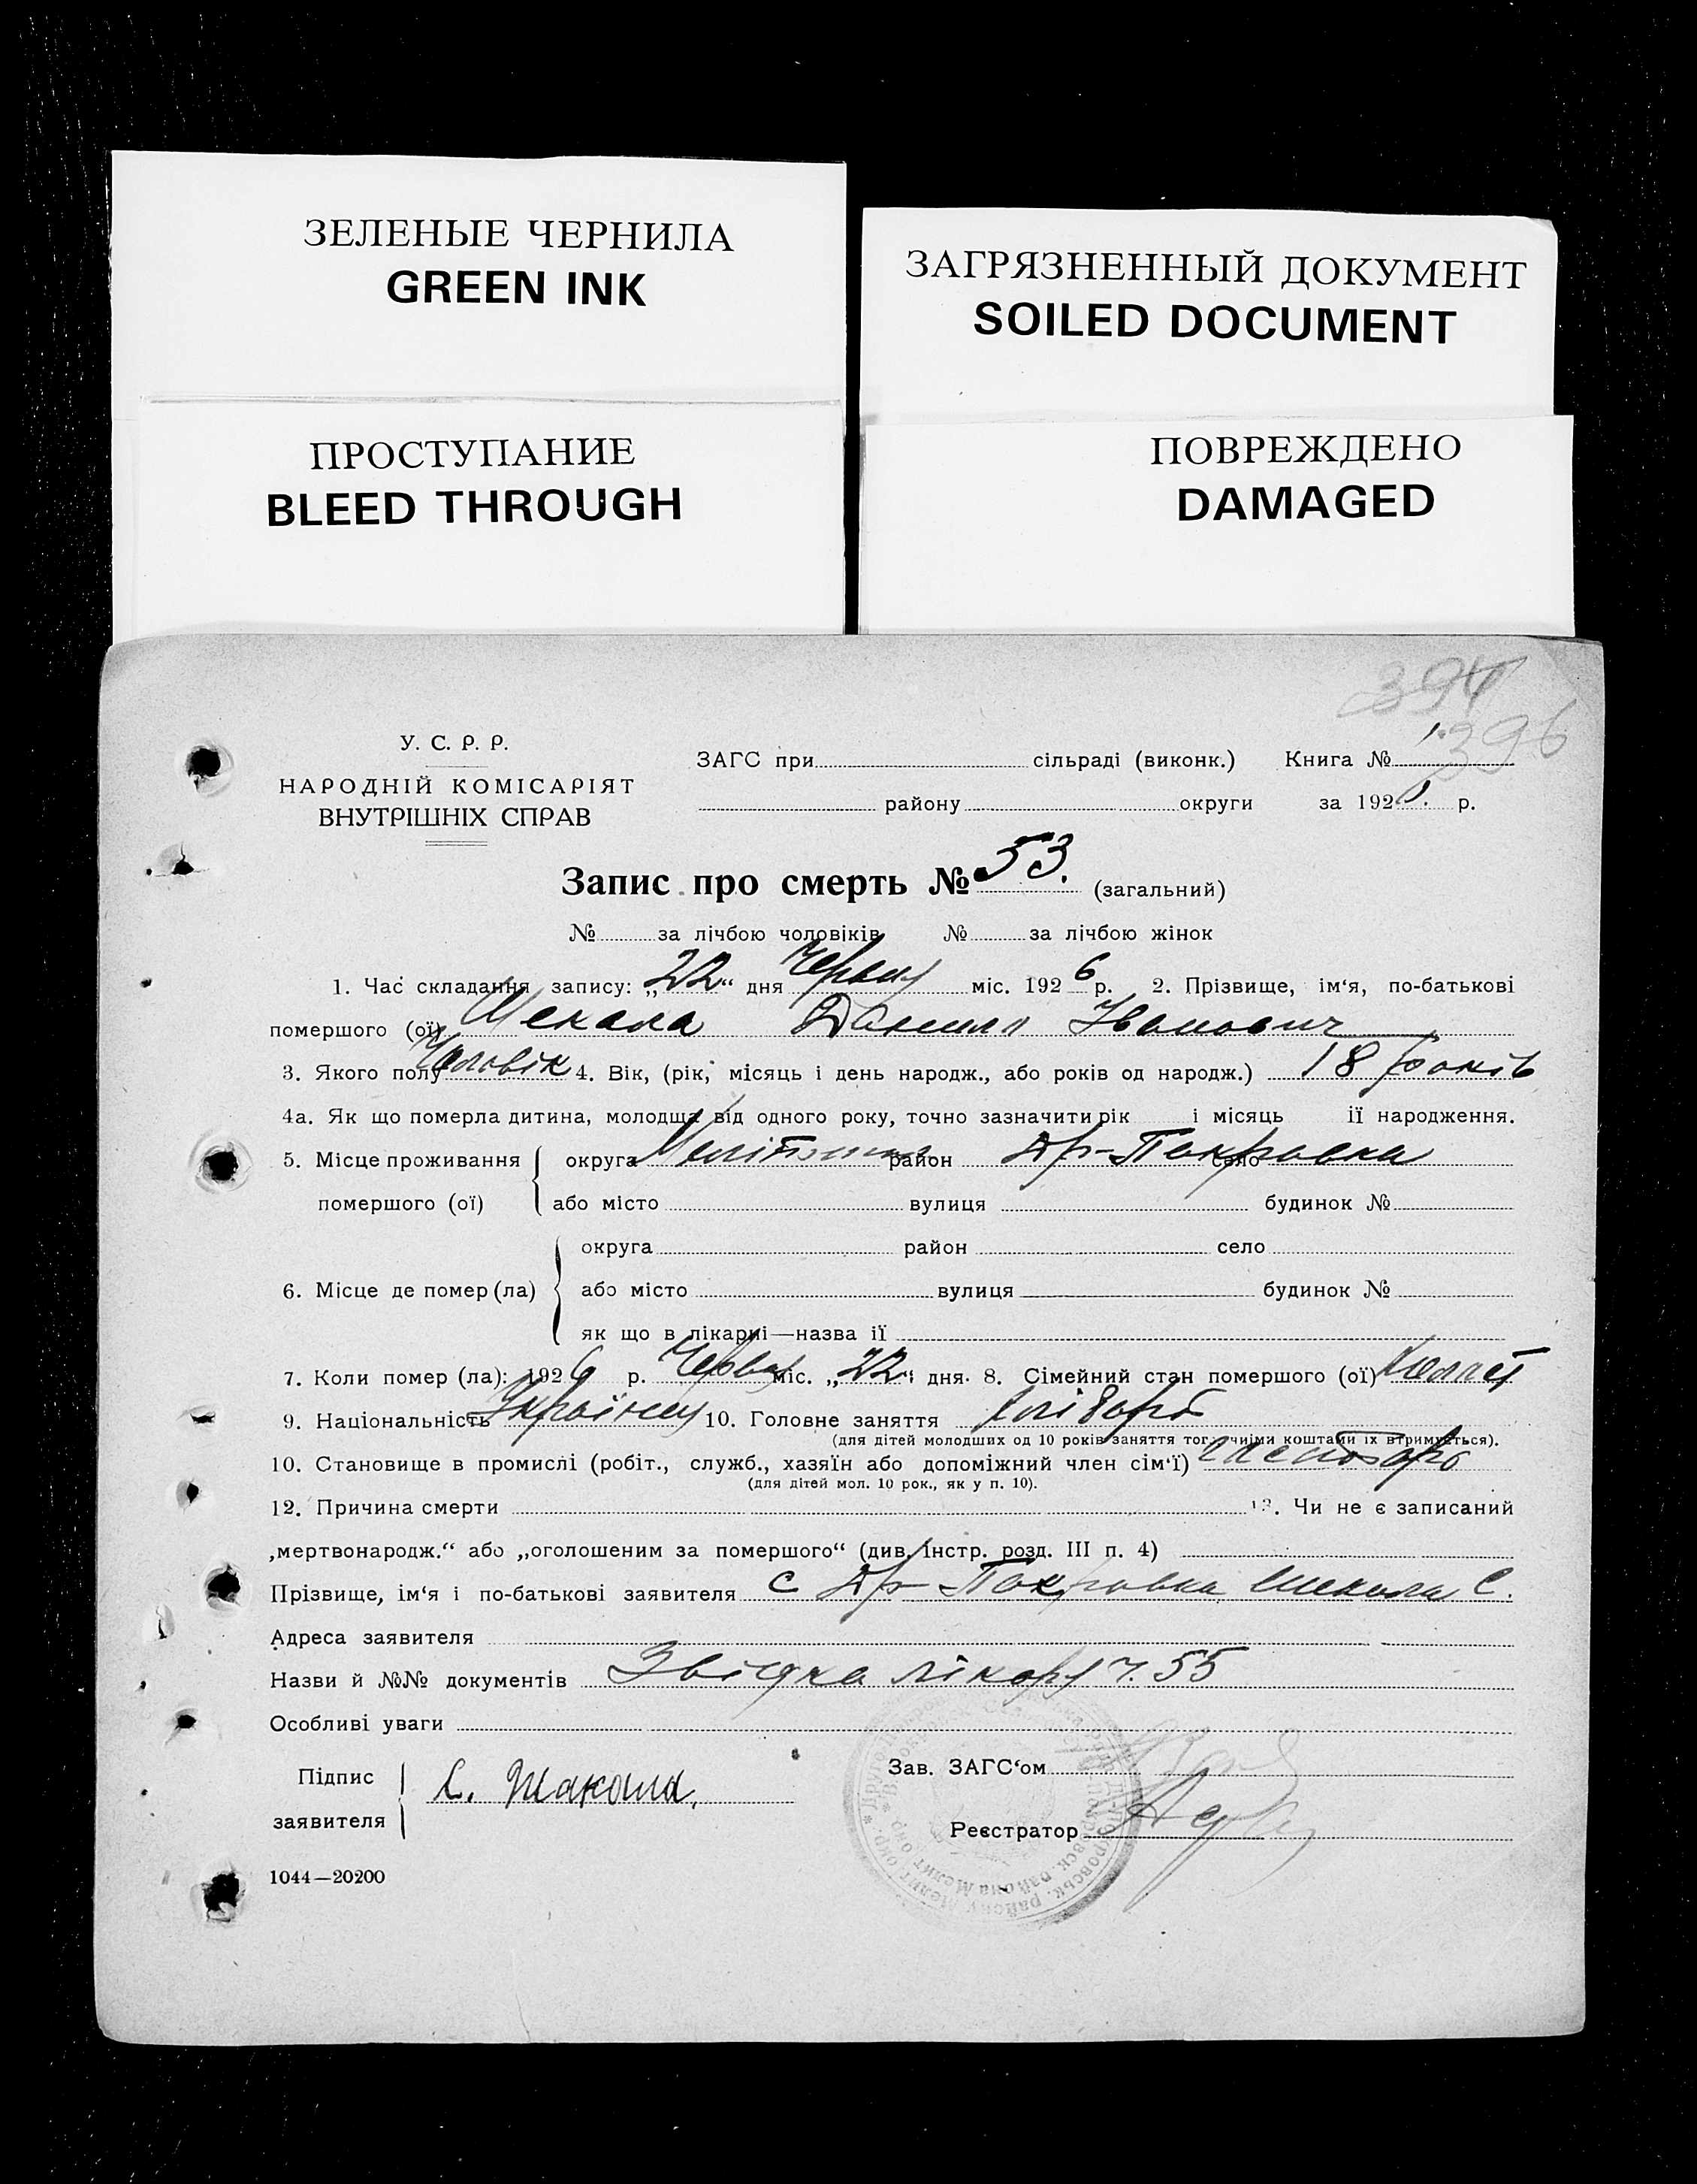 ЗЕЛЕНЫЕ ЧЕРНИЛА
GREEN INK
ЗАГРЯЗНЕННЫЙ ДОКУМЕНТ
SOILED DOCUMENT
ПРОСТУПАНИЕ
BLEED THROUGH
ПОВРЕЖДЕНО
DAMAGED
394
396
У. С. Р. Р.
НАРОДНІЙ КОМІСАРІЯТ
ВНУТРІШНІХ СПРАВ
ЗАГС при сільраді (виконк.) Книга №
району округи за 192 р.
Запис про смерть № 53. (загальний)
№ за лічбою чоловіків № за лічбою жінок
1. Час складання запису: „22“ дня міс. 1926 р. 2. Прізвище, ім‘я, по-батькові
помершого (ої) Шекала Данило Іванович
3. Якого полу Чоловік 4. Вік, (рік, місяць і день народж., або років од народж.) 18 років
4а. Як що померла дитина, молодща від одного року, точно зазначити рік і місяць ії народження.
5. Місце проживання округа район село Др-Покровка
помершого (ої) або місто вулиця будинок №
округа район село
6. Місце де помер (ла) або місто вулиця будинок №
як що в лікарні—назва ії
7. Коли помер (ла): 1926 р. міс. „22“ дня. 8. Сімейний стан помершого (ої)
9. Національність 10. Головне заняття хлібороб
(для дітей молодших од 10 років заняття того чиїми коштами їх втримується).
10. Становище в промислі (робіт., служб., хазяїн або допоміжний член сім‘ї)
(для дітей мол. 10 рок., як у п. 10).
12. Причина смерти 13. Чи не є записаний
„мертвонародж.“ або „оголошеним за помершого“ (див. Інстр. розд. III п. 4)
Прізвище, ім‘я і по-батькові заявителя с Др-Покровка Шекала С.
Адреса заявителя
Назви й №№ документів Звідка лікаря ч. 55
Особливі уваги
Підпис
заявителя С. Шакала.
Зав. ЗАГС‘ом
Реєстратор
1044—20200